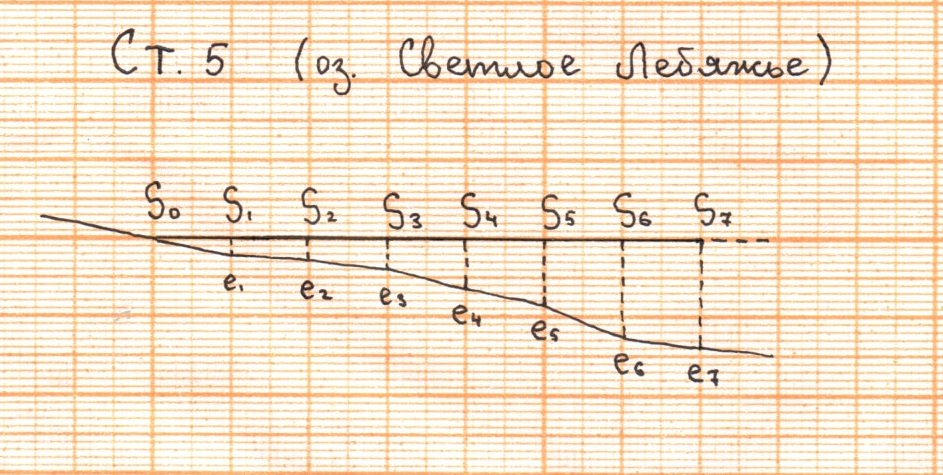 Ст. 5 (оз. Светлое Лебяжье)
S₀ S₁ S₂ S₃ S₄ S₅ S₆ S₇
e₁ e₂ e₃ e₄ e₅ e₆ e₇